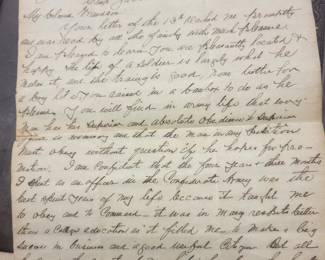 My Dear Grandson
Your letter of the 13th reached me promptly
and was read by all the family with much pleasure
I am pleased to learn you are pleasantly located &
happy The life of a soldier is largely what he
makes it and tho though good, now better for
a boy than
please. You will find in army life that every
man has his superior and absolute obedience to superior
is necessary and that the man in any
must obey without question if he hopes for pro-
motion. I am confident that the four years & three months
I spent as an officer in the Confederate Army was the
best spent years of my life because it taught me
to obey and to Command - it was in many respects better
than a College education as it fitted me to make a big
success in business and a good useful Citizen But all